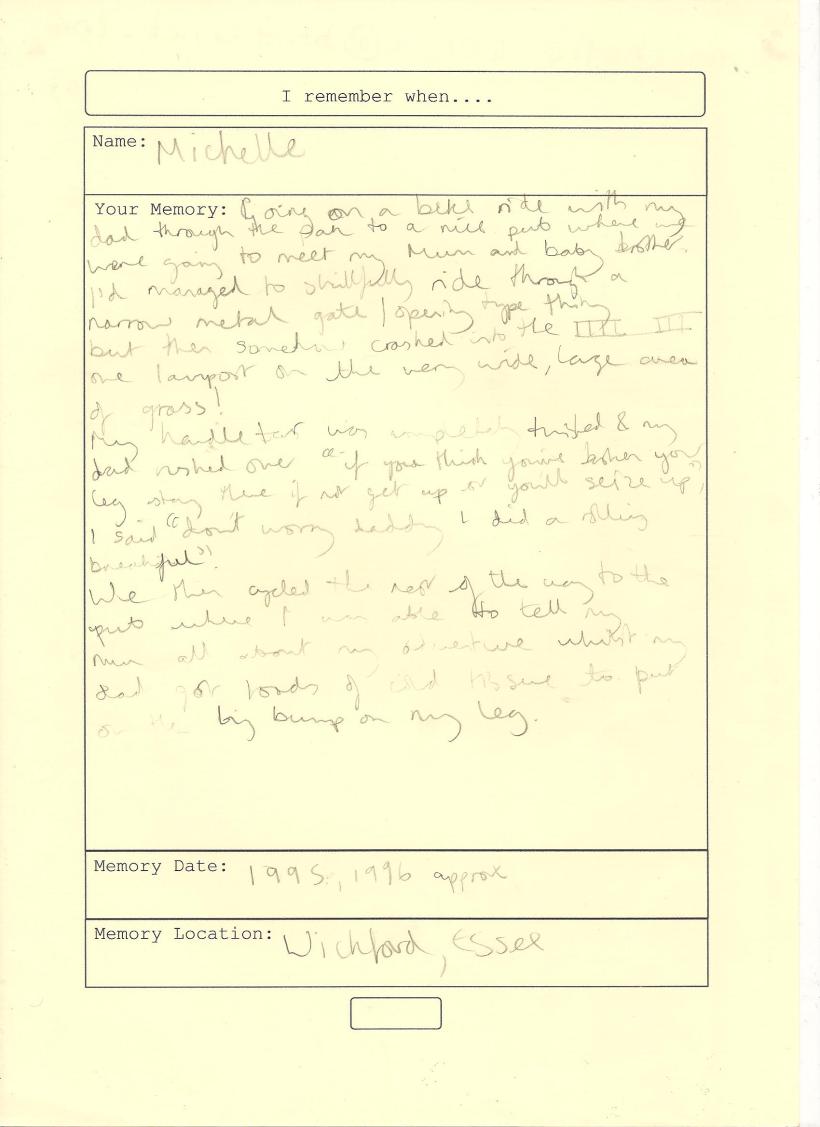 I remember when....
Name: Michelle
Your Memory: Going on a bike ride with my
dad through the park to a nice pub where we
were going to meet my Mum and baby brother.
I'd managed to skillfully ride through a
narrow metal gate / opening type thing
but then somehow crashed into the
one lampost on the very wide, large area
of grass!
My handle bar was completely twisted & my
dad rushed over "if you think you've broken your
leg stay there if not get up or you'll seize up",
I said "don't worry daddy I did a rolling
breakfull"!
We then cycled the rest of the way to the
pub where I was able to tell my
mum all about my adventure whilst my
dad got loads of cold tissue to put
on the big bump on my leg.
Memory Date: 1995, 1996 approx
Memory Location: Wickford, Essex